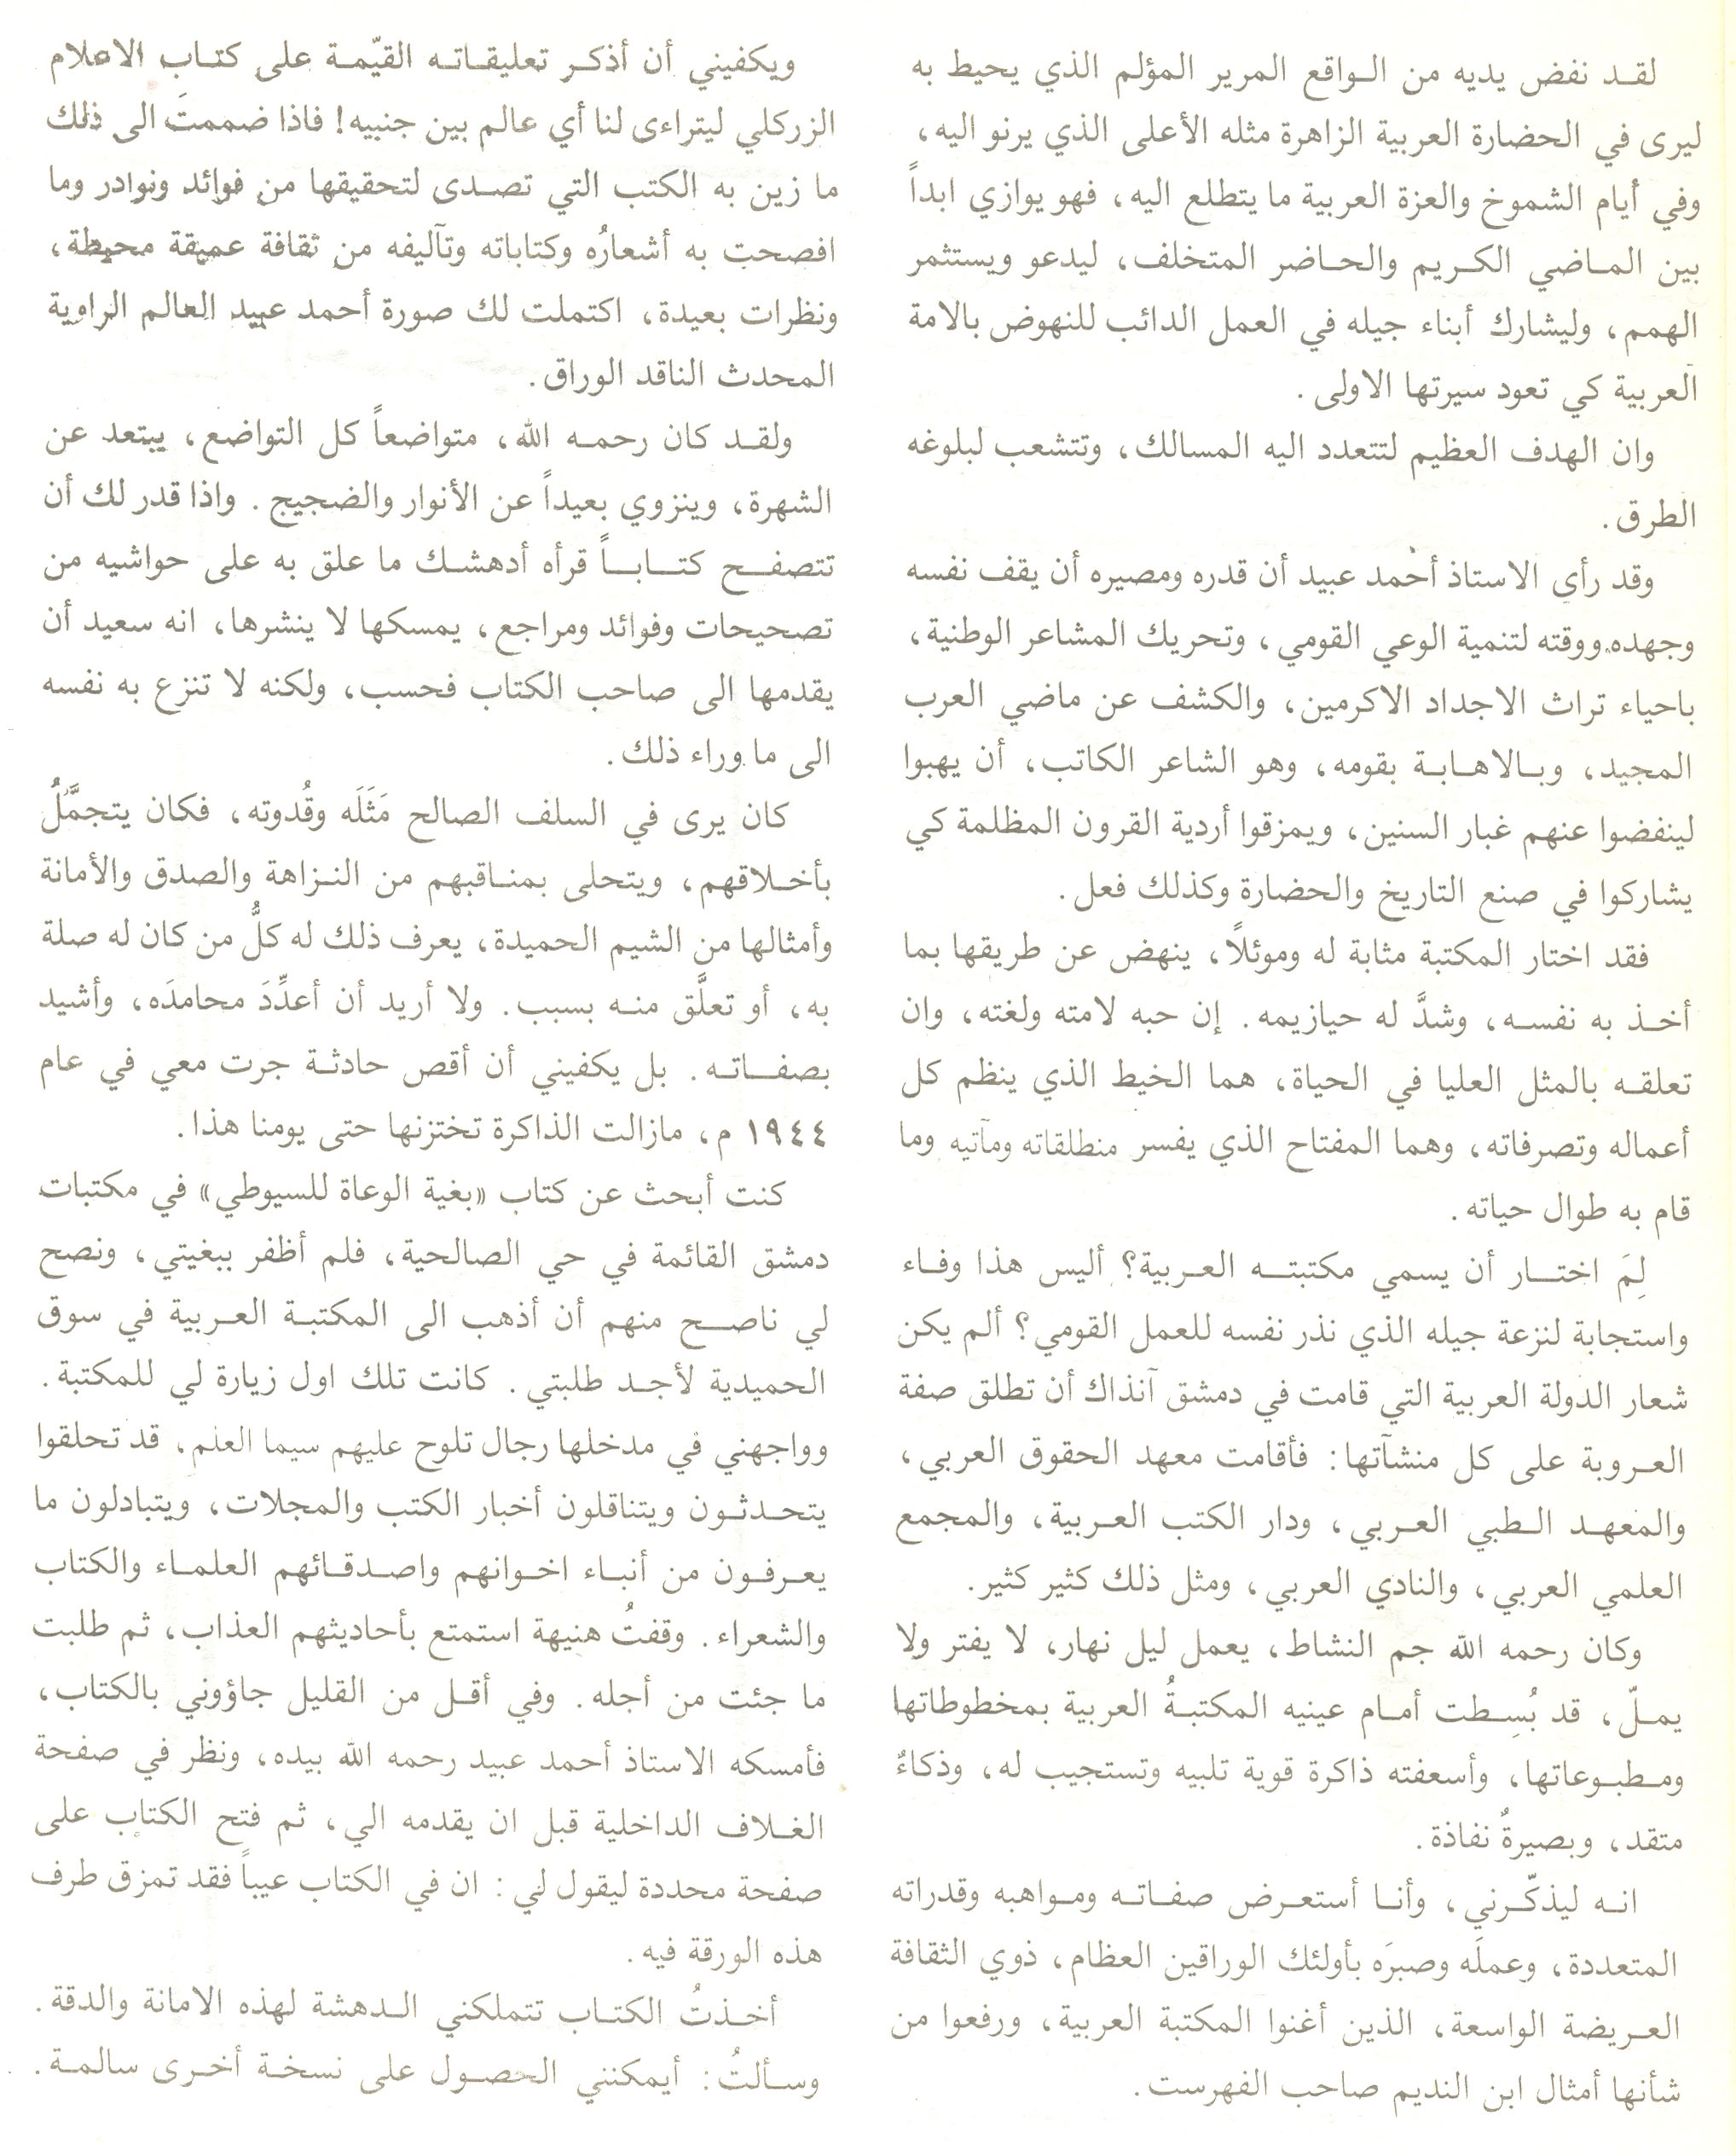 لقد نفض يديه من الواقع المرير المؤلم الذي يحيط به
ليرى في الحضارة العربية الزاهرة مثله الأعلى الذي يرنو اليه،
وفي أيام الشموخ والعزة العربية ما يتطلع اليه، فهو يوازي ابداً
بين الماضي الكريم والحاضر المتخلف، ليدعو ويستثمر
الهمم، وليشارك أبناء جيله في العمل الدائب للنهوض بالامة
العربية كي تعود سيرتها الاولى.
وان الهدف العظيم لتتعدد اليه المسالك، وتتشعب لبلوغه
الطرق.
وقد رأى الاستاذ أحمد عبيد أن قدره ومصيره أن يقف نفسه
وجهده ووقته لتنمية الوعي القومي، وتحريك المشاعر الوطنية،
باحياء تراث الاجداد الاكرمين، والكشف عن ماضي العرب
المجيد، وبالاهابة بقومه، وهو الشاعر الكاتب، أن يهبوا
لينفضوا عنهم غبار السنين، ويمزقوا أردية القرون المظلمة كي
يشاركوا في صنع التاريخ والحضارة وكذلك فعل.
فقد اختار المكتبة مثابة له وموئلاً، ينهض عن طريقها بما
أخذ به نفسه، وشدَّ له حيازيمه. إن حبه لامته ولغته، وان
تعلقه بالمثل العليا في الحياة، هما الخيط الذي ينظم كل
أعماله وتصرفاته، وهما المفتاح الذي يفسر منطلقاته ومآتيه وما
قام به طوال حياته.
لِمَ اختار أن يسمي مكتبته العربية؟ أليس هذا وفاء
واستجابة لنزعة جيله الذي نذر نفسه للعمل القومي؟ ألم يكن
شعار الدولة العربية التي قامت في دمشق آنذاك أن تطلق صفة
العروبة على كل منشآتها: فأقامت معهد الحقوق العربي،
والمعهد الطبي العربي، ودار الكتب العربية، والمجمع
العلمي العربي، والنادي العربي، ومثل ذلك كثير كثير.
وكان رحمه الله جم النشاط، يعمل ليل نهار، لا يفتر ولا
يملّ، قد بُسِطت أمام عينيه المكتبةُ العربية بمخطوطاتها
ومطبوعاتها، وأسعفته ذاكرة قوية تلبيه وتستجيب له، وذكاءٌ
متقد، وبصيرةٌ نفاذة.
انه ليذكّرني، وأنا أستعرض صفاته ومواهبه وقدراته
المتعددة، وعملَه وصبرَه بأولئك الوراقين العظام، ذوي الثقافة
العريضة الواسعة، الذين أغنوا المكتبة العربية، ورفعوا من
شأنها أمثال ابن النديم صاحب الفهرست.
ويكفيني أن أذكر تعليقاته القيّمة على كتاب الاعلام
الزركلي ليتراءى لنا أي عالم بين جنبيه! فاذا ضممتَ الى ذلك
ما زين به الكتب التي تصدى لتحقيقها من فوائد ونوادر وما
افصحت به أشعارُه وكتاباته وتآليفه من ثقافة عميقة محيطة،
ونظرات بعيدة، اكتملت لك صورة أحمد عبيد العالم الراوية
المحدث الناقد الوراق.
ولقد كان رحمه الله، متواضعاً كل التواضع، يبتعد عن
الشهرة، وينزوي بعيداً عن الأنوار والضجيج. واذا قدر لك أن
تتصفح كتاباً قرأه أدهشك ما علق به على حواشيه من
تصحيحات وفوائد ومراجع، يمسكها لا ينشرها، انه سعيد أن
يقدمها الى صاحب الكتاب فحسب، ولكنه لا تنزع به نفسه
الى ما وراء ذلك.
كان يرى في السلف الصالح مَثَلَه وقُدوته، فكان يتجمَّلُ
بأخلاقهم، ويتحلى بمناقبهم من النزاهة والصدق والأمانة
وأمثالها من الشيم الحميدة، يعرف ذلك له كلُّ من كان له صلة
به، أو تعلَّق منه بسبب. ولا أريد أن أعدِّدَ محامدَه، وأشيد
بصفاته. بل يكفيني أن أقص حادثة جرت معي في عام
١٩٤٤ م، مازالت الذاكرة تختزنها حتى يومنا هذا.
كنت أبحث عن كتاب «بغية الوعاة للسيوطي» في مكتبات
دمشق القائمة في حي الصالحية، فلم أظفر ببغيتي، ونصح
لي ناصح منهم أن أذهب الى المكتبة العربية في سوق
الحميدية لأجد طلبتي. كانت تلك اول زيارة لي للمكتبة.
وواجهني في مدخلها رجال تلوح عليهم سيما العلم، قد تحلقوا
يتحدثون ويتناقلون أخبار الكتب والمجلات، ويتبادلون ما
يعرفون من أنباء اخوانهم واصدقائهم العلماء والكتاب
والشعراء. وقفتُ هنيهة استمتع بأحاديثهم العذاب، ثم طلبت
ما جئت من أجله. وفي أقل من القليل جاؤوني بالكتاب،
فأمسكه الاستاذ أحمد عبيد رحمه الله بيده، ونظر في صفحة
الغلاف الداخلية قبل ان يقدمه الي، ثم فتح الكتاب على
صفحة محددة ليقول لي: ان في الكتاب عيباً فقد تمزق طرف
هذه الورقة فيه.
أخذتُ الكتاب تتملكني الدهشة لهذه الامانة والدقة.
وسألتُ: أيمكنني الحصول على نسخة أخرى سالمة.